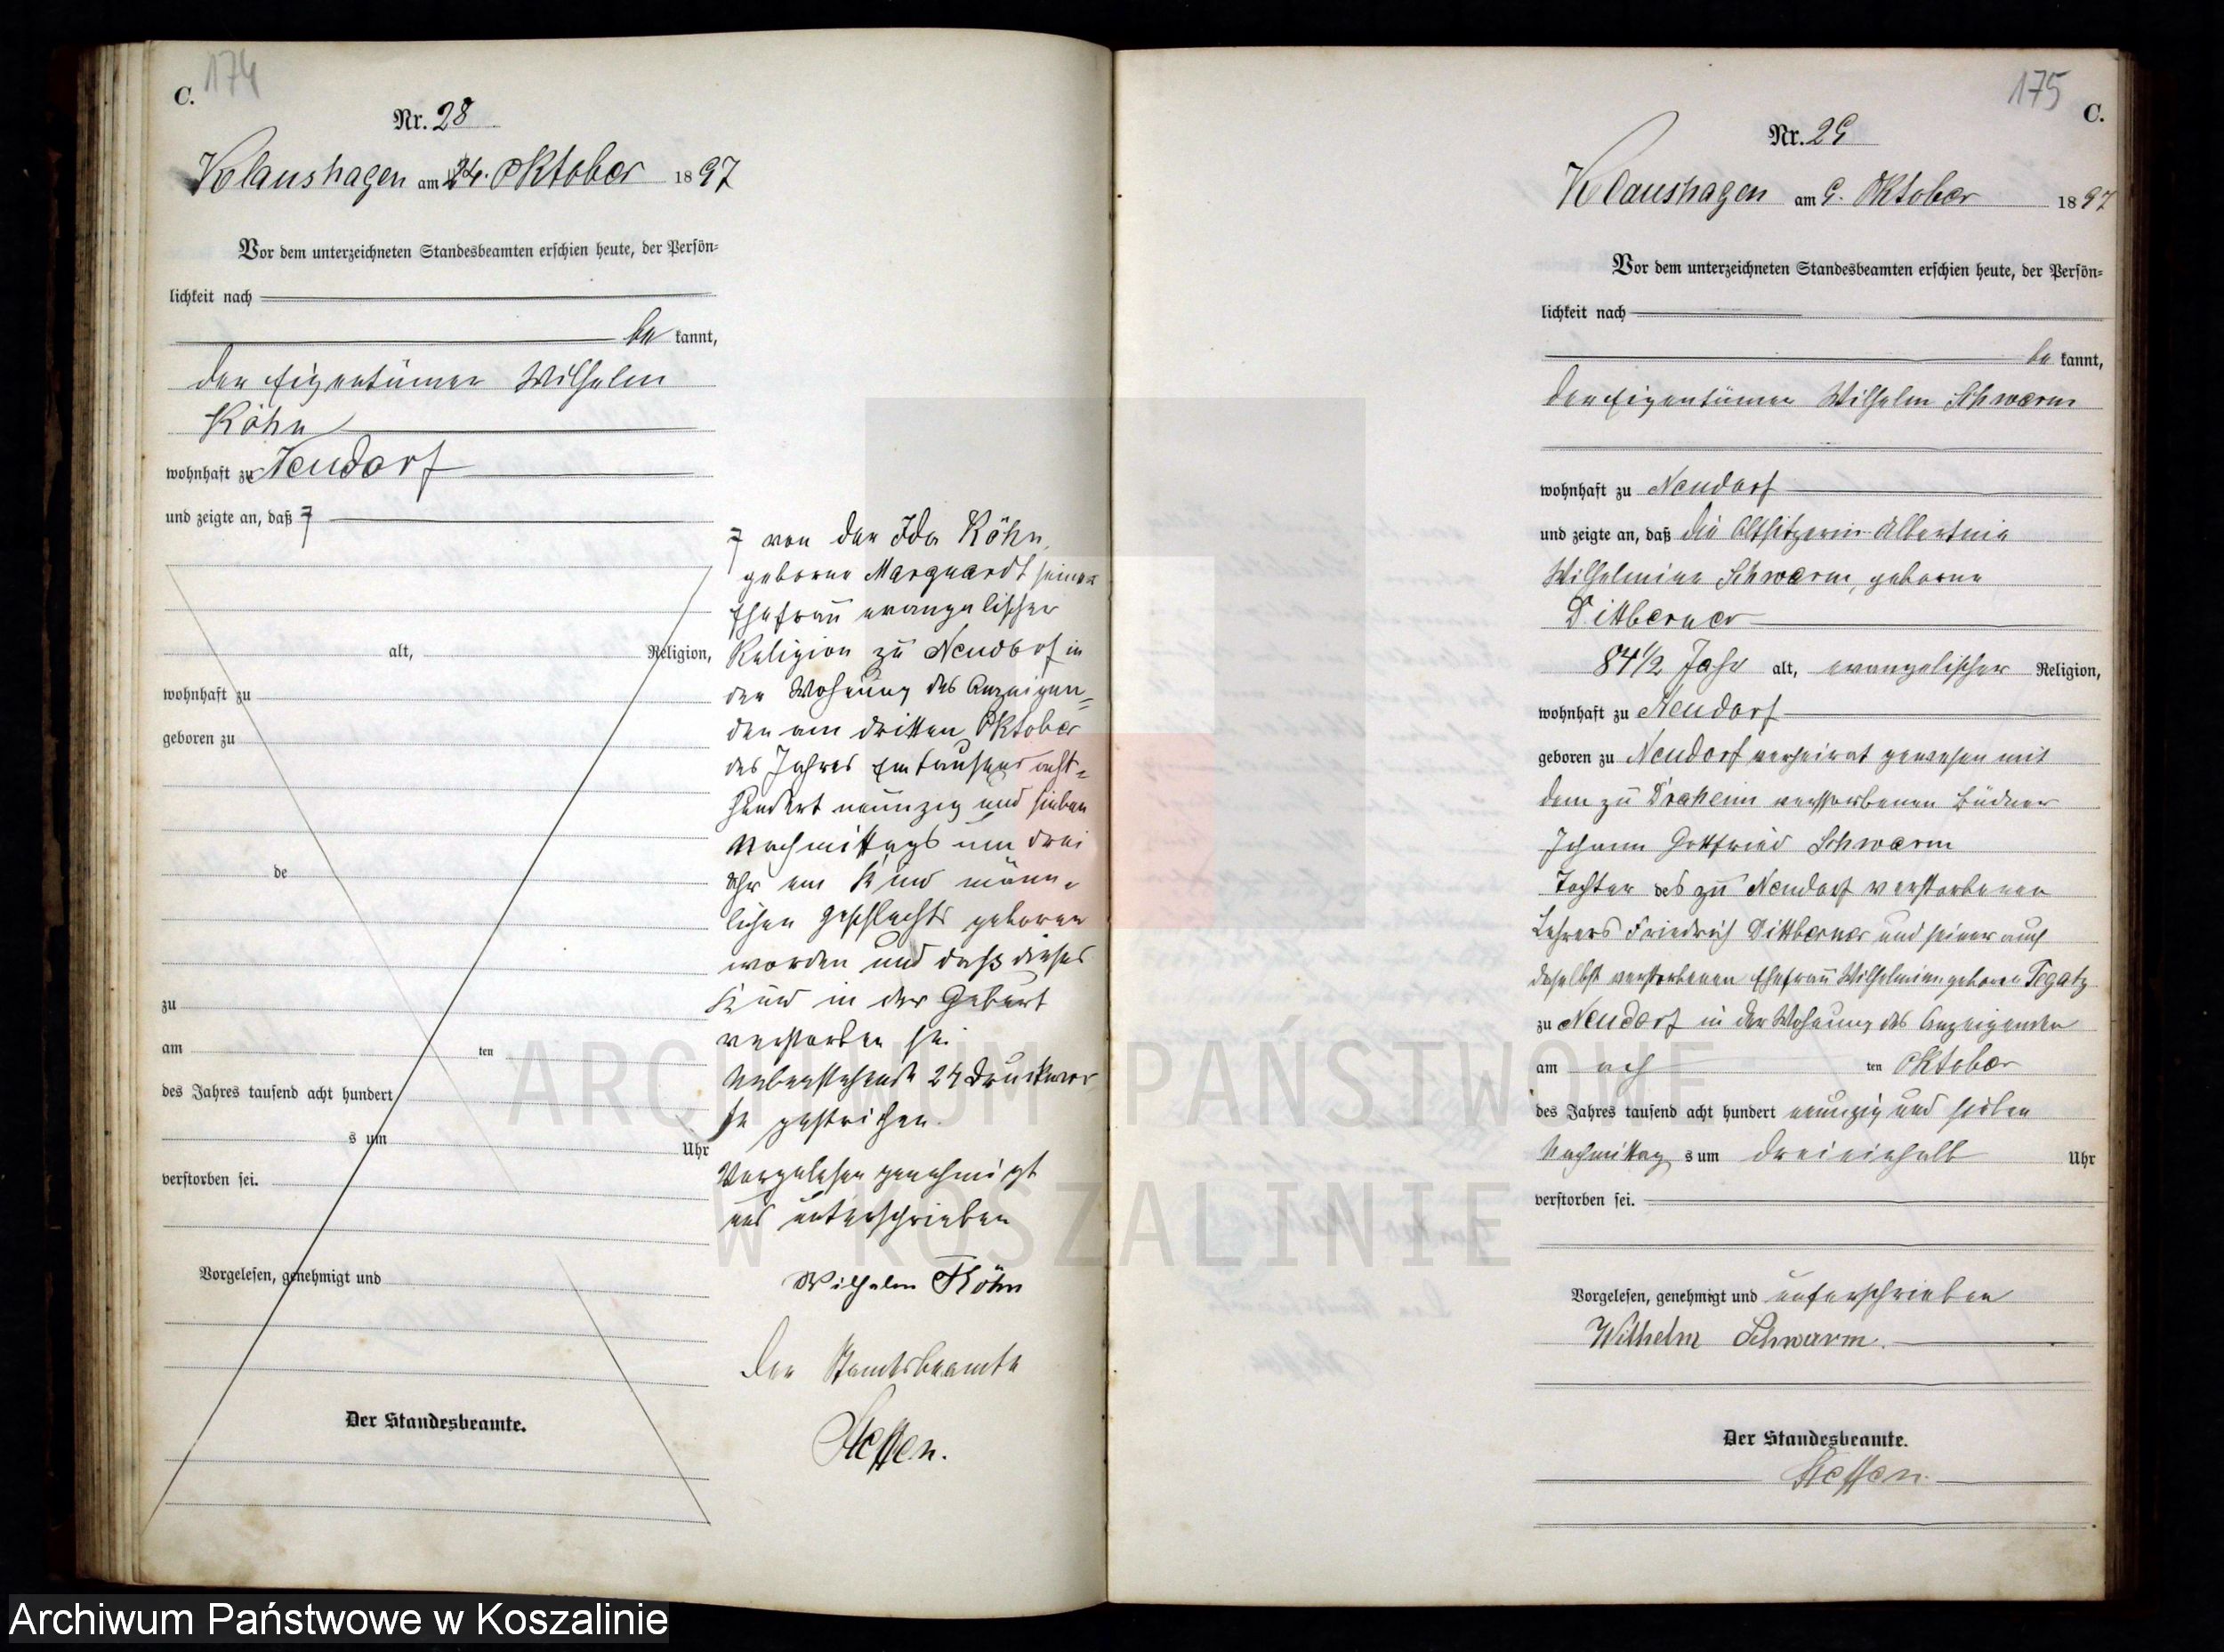 174
C.
Nr. 28
Klaushagen am 24. Oktober 1897
Vor dem unterzeichneten Standesbeamten erschien heute, der Persön=
lichkeit nach
be kannt,
der Eigentümer Wilhelm
Köhn
wohnhaft zu Neudorf
und zeigte an, daß
von der Ida Köhn,
geborne Marquardt seiner
Ehefrau evangelischer
alt, Religion,
Religion zu Neudorf in
wohnhaft zu
der Wohnung des Anzeigen=
geboren zu
den am dritten Oktober
des Jahres Eintausend acht=
hundert neunzig und sieben
Nachmittags um drei
de
Uhr ein Kind männ=
lichen Geschlechts geboren
worden und daß dieses
zu
Kind in der Geburt
am ten
verstorben sei
des Jahres tausend acht hundert
24 Druckwor
s um Uhr
te gestrichen.
verstorben sei.
Vorgelesen genehmigt
und unterschrieben
Vorgelesen, genehmigt und
Wilhelm Köhn
Der Standesbeamte
Der Standesbeamte.
Steffen.
175
C.
Nr. 29
Klaushagen am 9. Oktober 1897
Vor dem unterzeichneten Standesbeamten erschien heute, der Persön=
lichkeit nach
be kannt,
der Eigentümer Wilhelm Schwarm
wohnhaft zu Neudorf
und zeigte an, daß die Altsitzerin Albertine
Wilhelmine Schwarm, geborne
Dittberner
84 1/2 Jahr alt, evangelischer Religion,
wohnhaft zu Neudorf
geboren zu Neudorf verheirat gewesen mit
dem zu Draheim verstorbenen Büdner
Johann Gottfried Schwarm
Tochter des zu Neudorf verstorbenen
Lehrers Friedrich Dittberner und seiner auch
daselbst verstorbenen Ehefrau Wilhelmine geborne Tegatz
zu Neudorf in der Wohnung des Anzeigenden
am ach ten Oktober
des Jahres tausend acht hundert neunzig und sieben
Nachmittag s um dreieinhalb Uhr
verstorben sei.
Vorgelesen, genehmigt und unterschrieben
Wilhelm Schwarm.
Der Standesbeamte.
Steffen.
ARCHIWUM PAŃSTWOWE
W KOSZALINIE
Archiwum Państwowe w Koszalinie